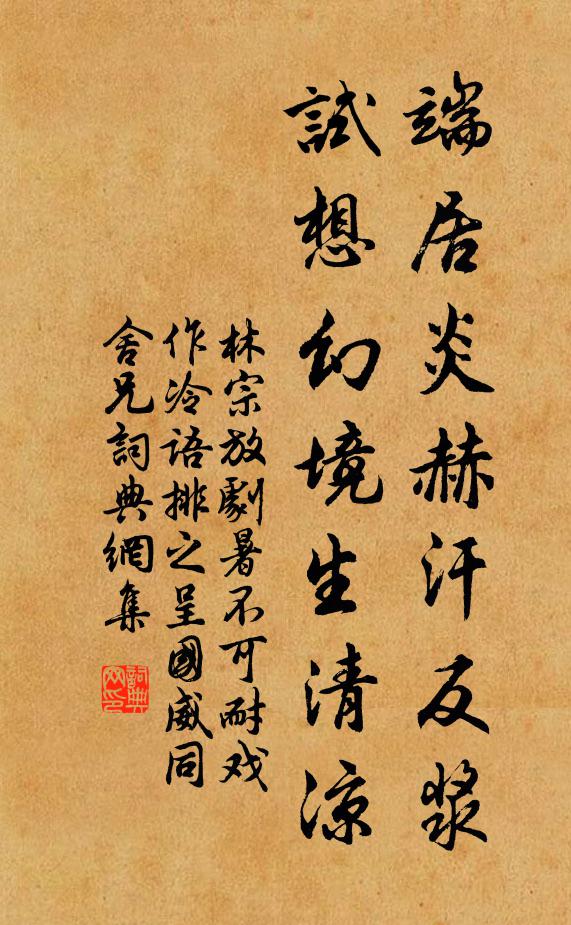 端居炎赫汗反漿
試想幻境生清涼
林宗放劇暑不可耐戏
作冷語排之呈國威同
舍兄詞典網集
詞典
网印